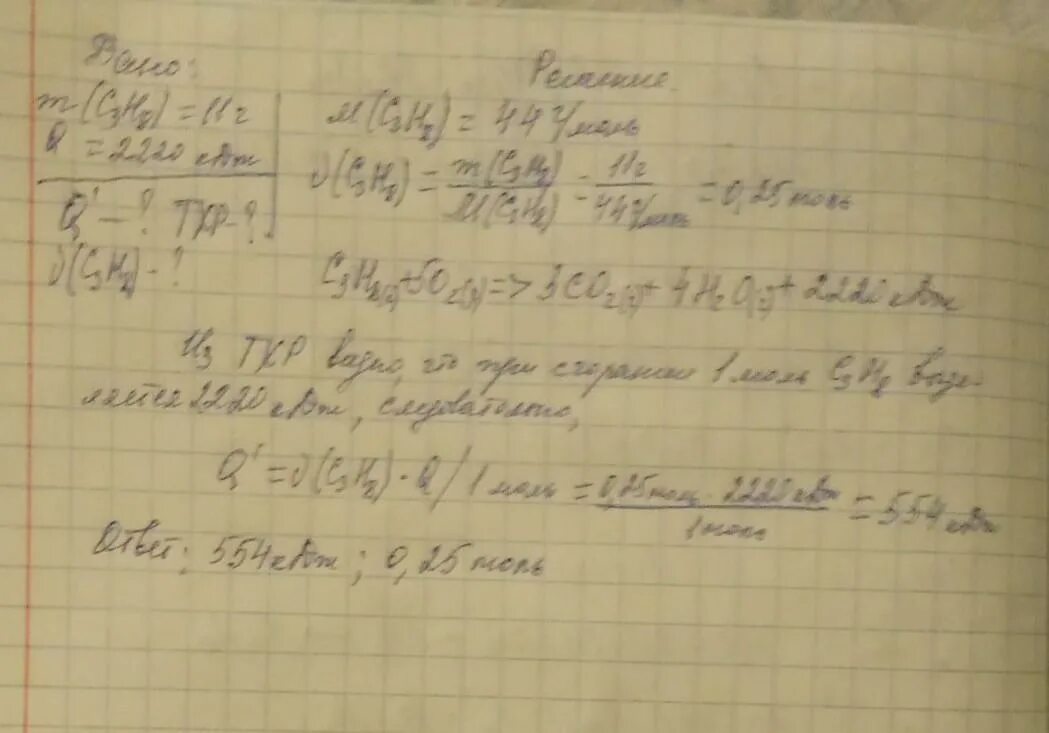 Дано:
m(C₃H₈) = 11г
Q = 2220 кДж
Q' - ? ТХР-?
ν(C₃H₈) - ?
Решение.
M(C₃H₈) = 44 г/моль
ν(C₃H₈) = m(C₃H₈) / M(C₃H₈) = 11г / 44г/моль = 0,25 моль
C₃H₈(г) + 5O₂(г) => 3CO₂(г) + 4H₂O(г) + 2220 кДж
Из ТХР видно, что при сгорании 1 моль C₃H₈ выде-
ляется 2220 кДж, следовательно,
Q' = ν(C₃H₈) · Q / 1 моль = 0,25 моль · 2220 кДж / 1 моль = 554 кДж
Ответ: 554 кДж; 0,25 моль